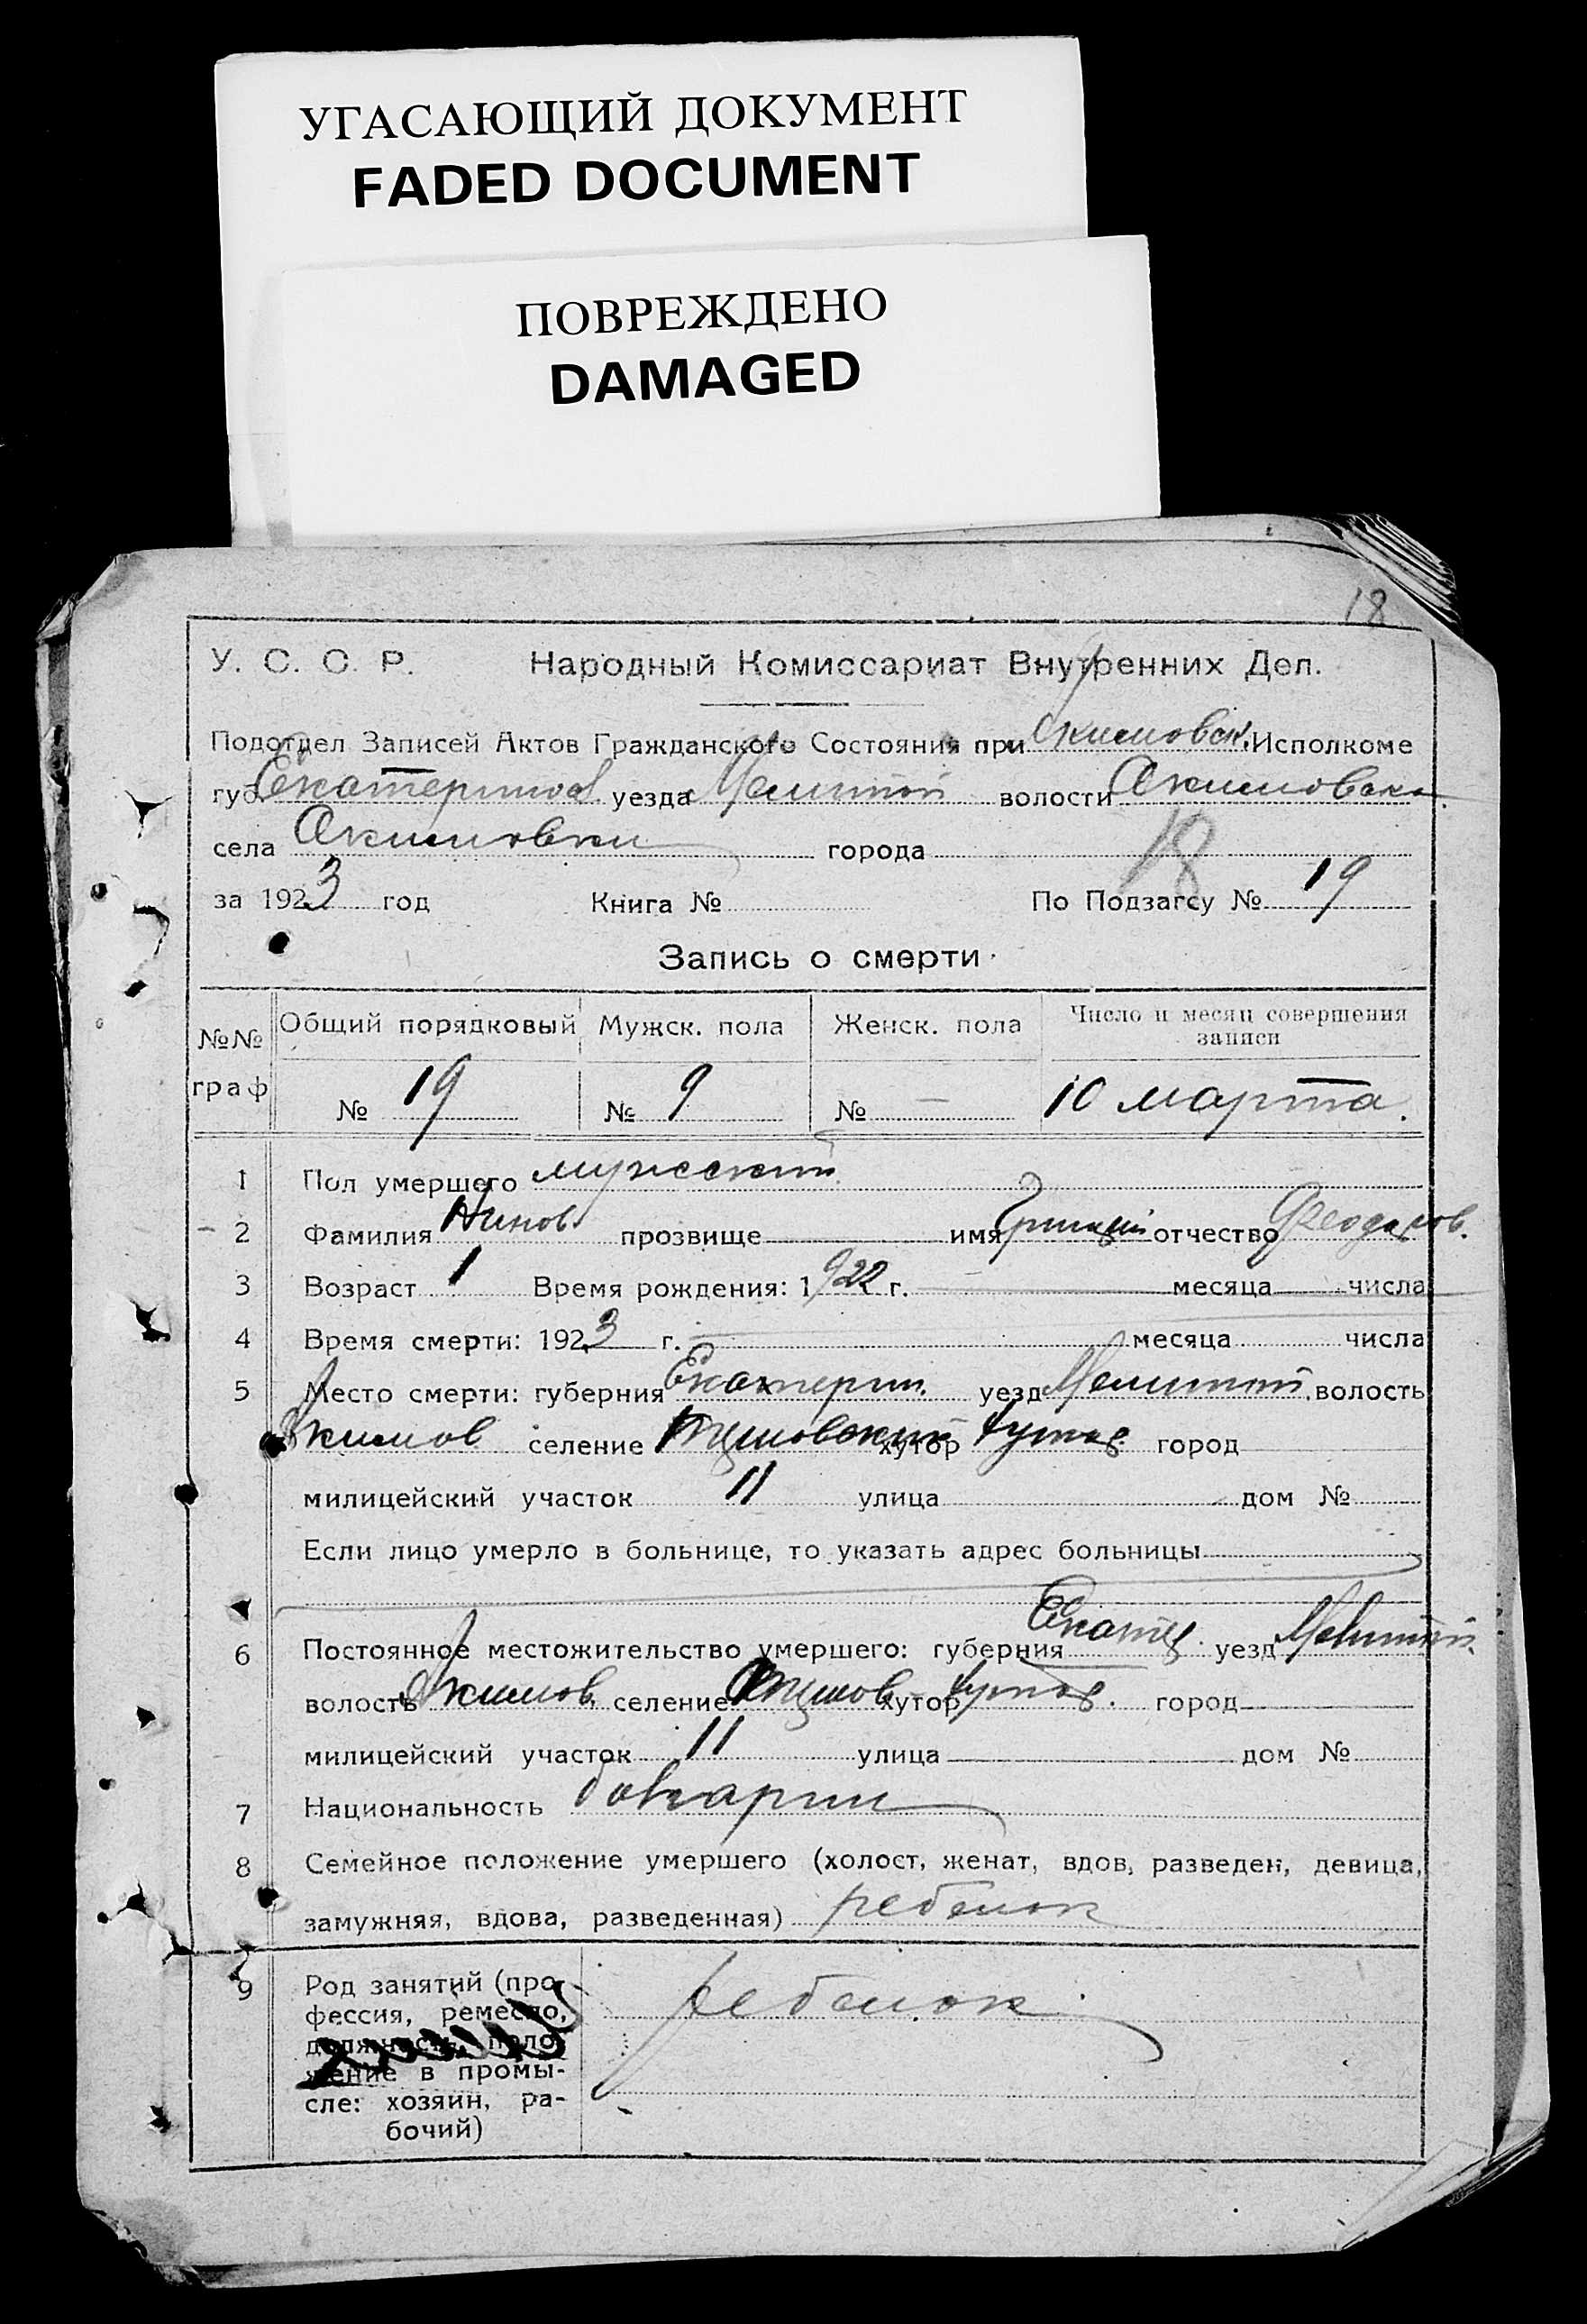 УГАСАЮЩИЙ ДОКУМЕНТ
FADED DOCUMENT
ПОВРЕЖДЕНО
DAMAGED
18
У. С. С. Р. Народный Комиссариат Внутренних Дел.
Подотдел Записей Актов Гражданского Состояния при Акимовск. Исполкоме
губ. Екатеринос уезда Мелитоп волости Акимовско
села Акимовки города
18
за 1923 год Книга № По Подзагсу № 19
Запись о смерти
№№ граф Общий порядковый Мужск. пола Женск. пола Число и месяц совершения записи
№ 19 № 9 № — 10 марта.
1 Пол умершего мужский
2 Фамилия прозвище имя отчество
3 Возраст 1 Время рождения: 1922 г. месяца числа
4 Время смерти: 1923 г. месяца числа
5 Место смерти: губерния Екатерин. уезд Мелитоп. волость
Акимов селение хутор хутор. город
милицейский участок 11 улица дом №
Если лицо умерло в больнице, то указать адрес больницы
6 Постоянное местожительство умершего: губерния Екатер. уезд Мелитоп.
волость Акимов. селение хутор хутор. город
милицейский участок 11 улица дом №
7 Национальность болгарин
8 Семейное положение умершего (холост, женат, вдов, разведен, девица,
замужняя, вдова, разведенная) ребенок
9 Род занятий (про-
фессия, ремесло,
должность, поло-
жение в промы-
сле: хозяин, ра-
бочий)
ребенок